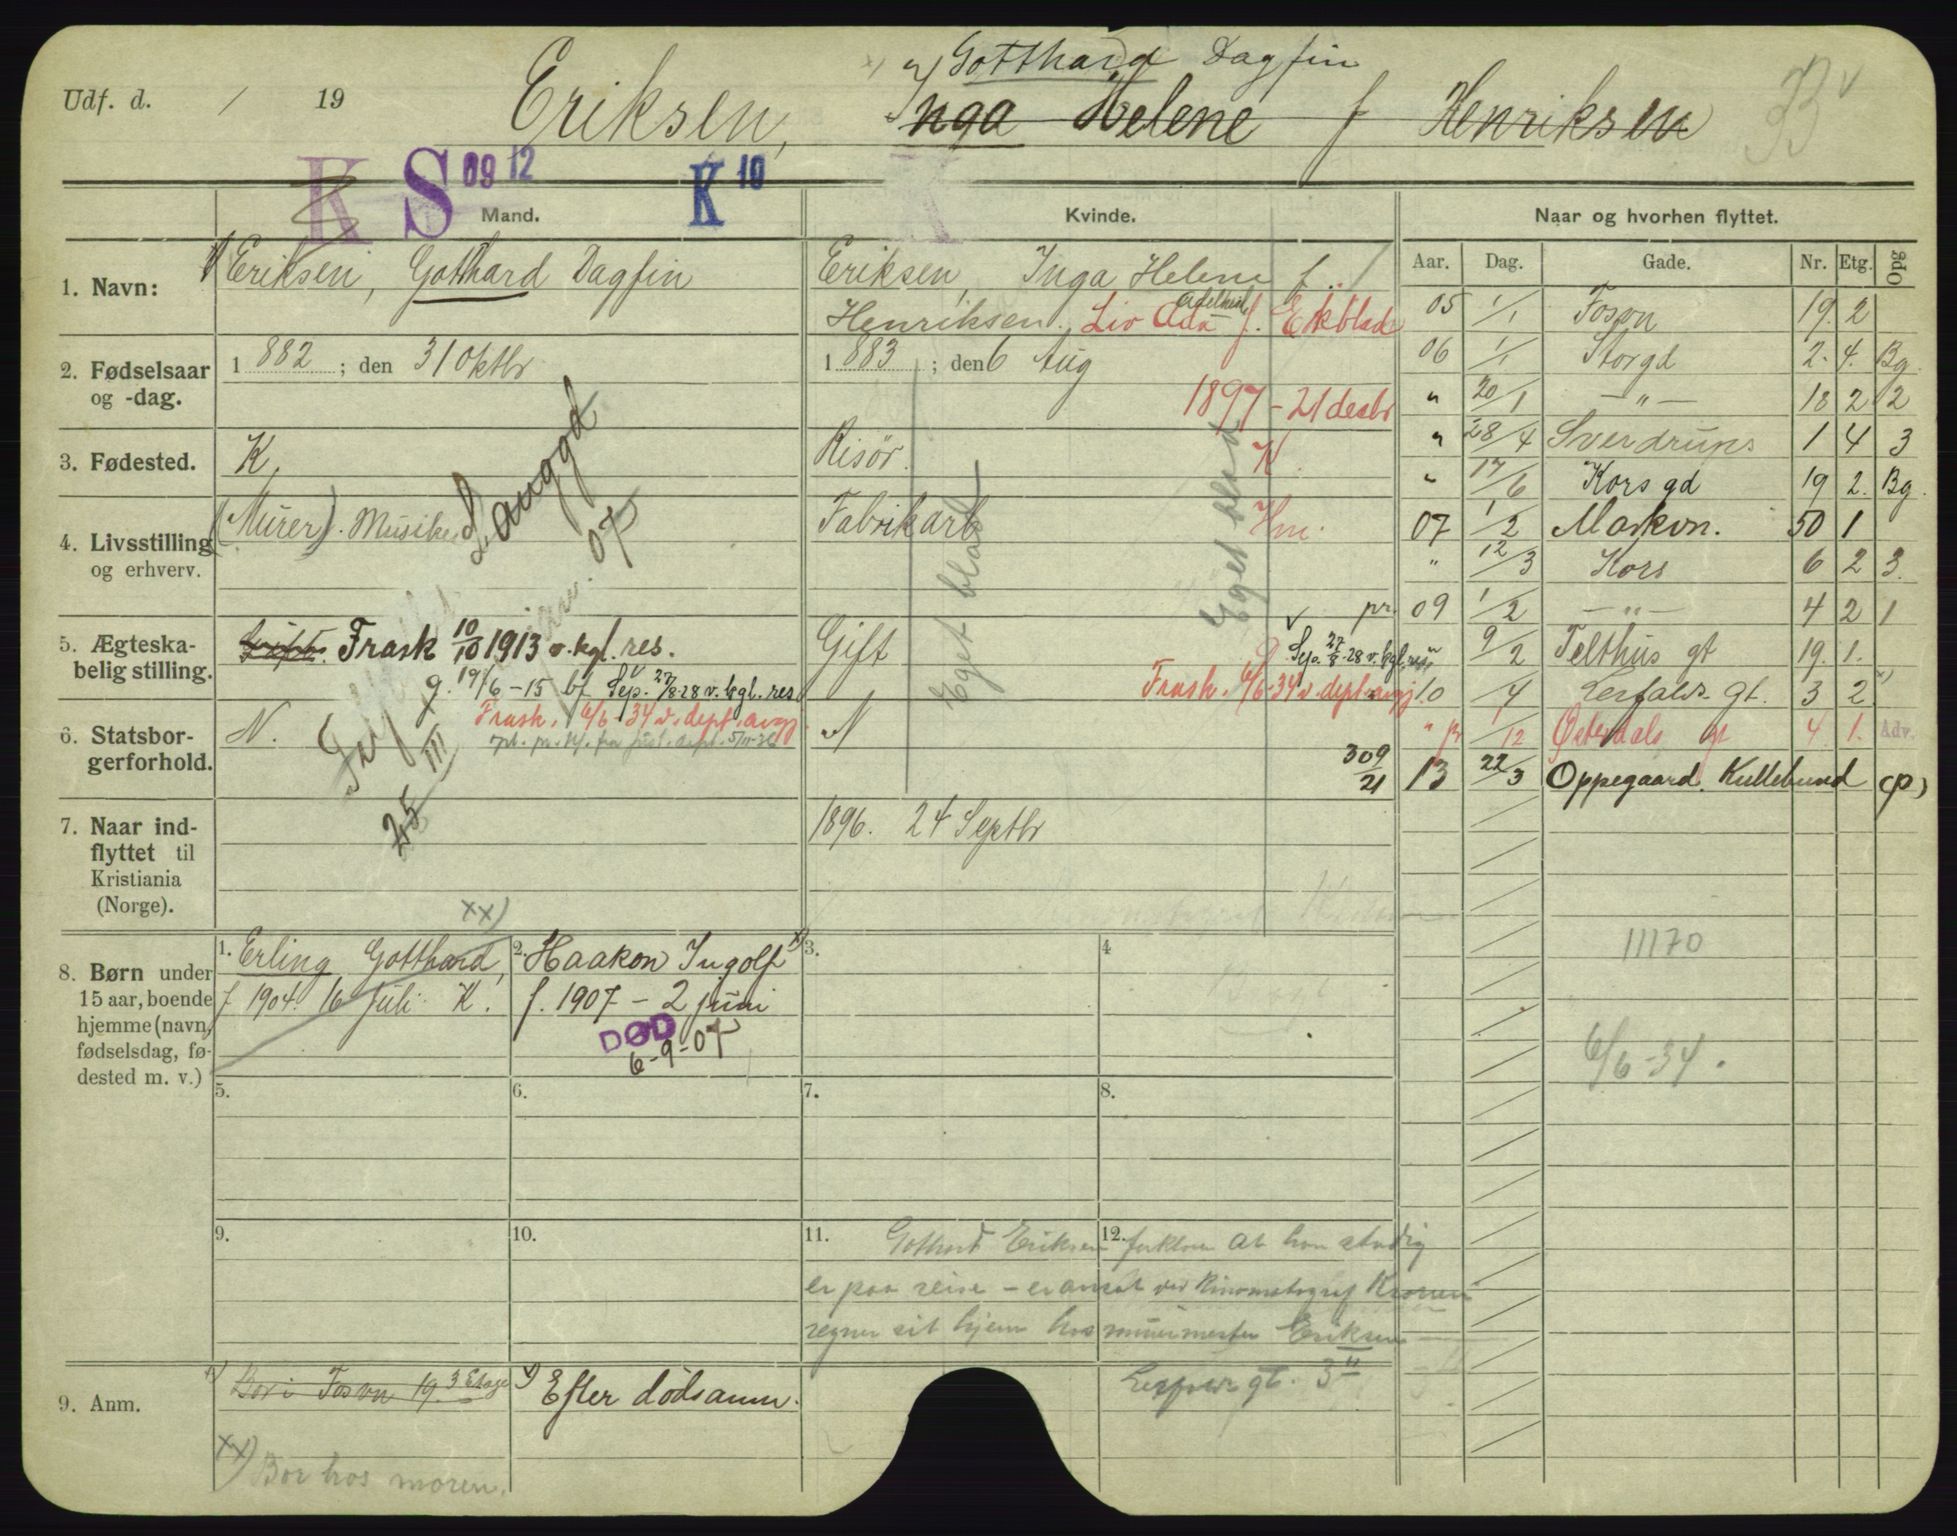 Gotthard Dagfin
Udf. d. / 19 Eriksen, Inga Helene f Henriksen B v
K S 09 12 K 10 K
Mand. Kvinde. Naar og hvorhen flyttet.
Aar. Dag. Gade. Nr. Etg. Opg
1. Navn: Eriksen, Gotthard Dagfin
Eriksen, Inga Helene f.
Henriksen. Liv Ada Adelheid f. Ekblad
2. Fødselsaar og -dag.
1 882 ; den 31 Oktbr
1 883 ; den 6 Aug
1897 - 21 desbr
3. Fødested. K. Risör. K.
4. Livsstilling og erhverv.
(Murer). Musiker Fabrikarb Hm.
Langgd
07
Eget blad
Eget blad
5. Ægteska-
belig stilling.
Gift. Frask 10/10 1913 v. kgl. res.
g. 19/6 - 15 bf Sep. 27/8-28 v. kgl. res
Frask. 6/6-34 v. dept. avgj.
Gift
Sep. 27/8-28 v. kgl. res
Frask. 6/6-34 v. dept. avgj
6. Statsbor-
gerforhold.
N. N
309/21
25/III
7. Naar ind-
flyttet til
Kristiania
(Norge).
1896. 24 Septbr
8. Børn under
15 aar, boende
hjemme (navn,
fødselsdag, fø-
dested m. v.)
xx)
1. Erling Gotthard,
f 1904. 16 Juli K.
2. Haakon Ingolf x)
f. 1907 - 2 juni
DØD
6-9-07
3.
4
5.
6.
7.
8.
9.
10.
11.
12.
Gothard Eriksen forklarer at han stadig
er paa reise - er ansat ved Kinomatograf Kronen
regner sit hjem hos murmester Eriksen
gt. 3 II
9. Anm. Bor i Fosvn 19. 3 Etage
Efter dödsanm.
xx) Bor hos moren.
05 1/1 Fosvn 19. 2
06 1/1 Storgd 2. 4. Bg.
" 20/1 — " — 18 2 2
" 28/4 Sverdrups 1 4 3
" 17/6 Kors gd 19 2. Bg.
07 1/2 Markvn. 50 1
" 12/3 Kors 6 2 3.
pr. 09 1/2 — " — 4 2 1
" 9/2 Telthus gt 19. 1.
10 /4 Leirfalds gt. 3 2
" pr 1/12 Østerdals gt 4. 1. Adv.
13 22/3 Oppegaard. Kullebund (p)
11170
6/6-34.